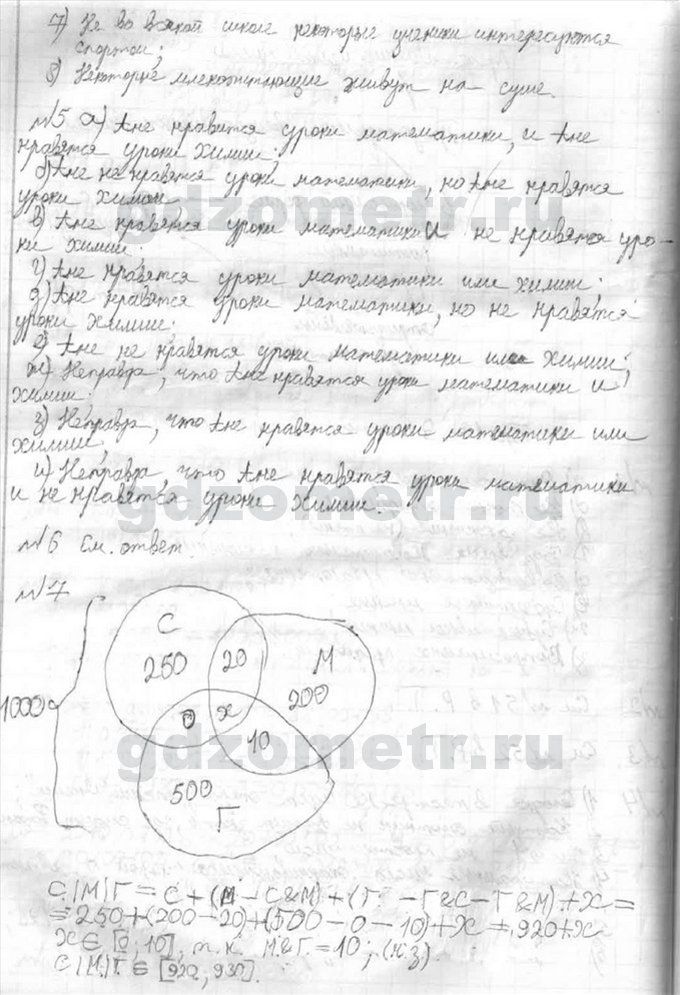 7) Не во всякой школе некоторые ученики интересуются
спортом;
8) Некоторые млекопитающие живут на суше.
№5 а) Мне нравятся уроки математики, и мне
нравятся уроки химии;
б) Мне не нравятся уроки математики, но мне нравятся
уроки химии
в) Мне нравятся уроки математики и не нравятся уро-
ки химии.
г) Мне нравятся уроки математики или химии.
д) Мне нравятся уроки математики, но не нравятся
уроки химии.
е) Мне не нравятся уроки математики или химии;
ж) Неправда, что мне нравятся уроки математики и
химии.
з) Неправда, что мне нравятся уроки математики или
химии
и) Неправда что мне нравятся уроки математики
и не нравятся уроки химии.
№6 См. ответ
№7
С
250 20 М
1000 200
0 x
10
500
Г
C|M|Г = C + (M - C&M) + (Г - Г&C - Г&M) + X =
= 250 + (200 - 20) + (500 - 0 - 10) + X = 920 + X
X ∈ [0, 10], т.к. M&Г = 10; (н.з)
C|M|Г ∈ [920, 930].
gdzometr.ru
gdzometr.ru
gdzometr.ru